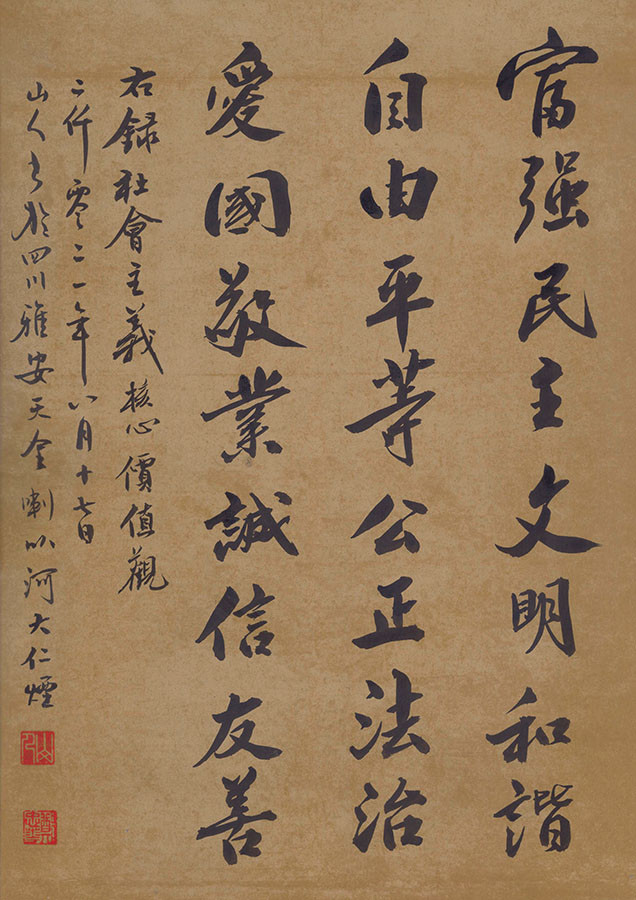 富强民主文明和諧
自由平等公正法治
愛國敬業誠信友善
右録社會主義核心價值觀
二仟零二一年八月十七日
山人書於四川雅安天全喇叭河大仁煙